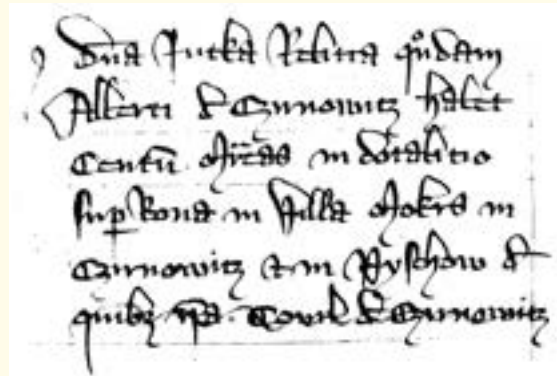 Dna Jutka Relicta qndam
Alberti de Czrnowitz habet
Centu Mrcas in dotalitio
sup bona in villa Mokra in
Czrnowitz et in Pyschow de
quibz Czrnowitz